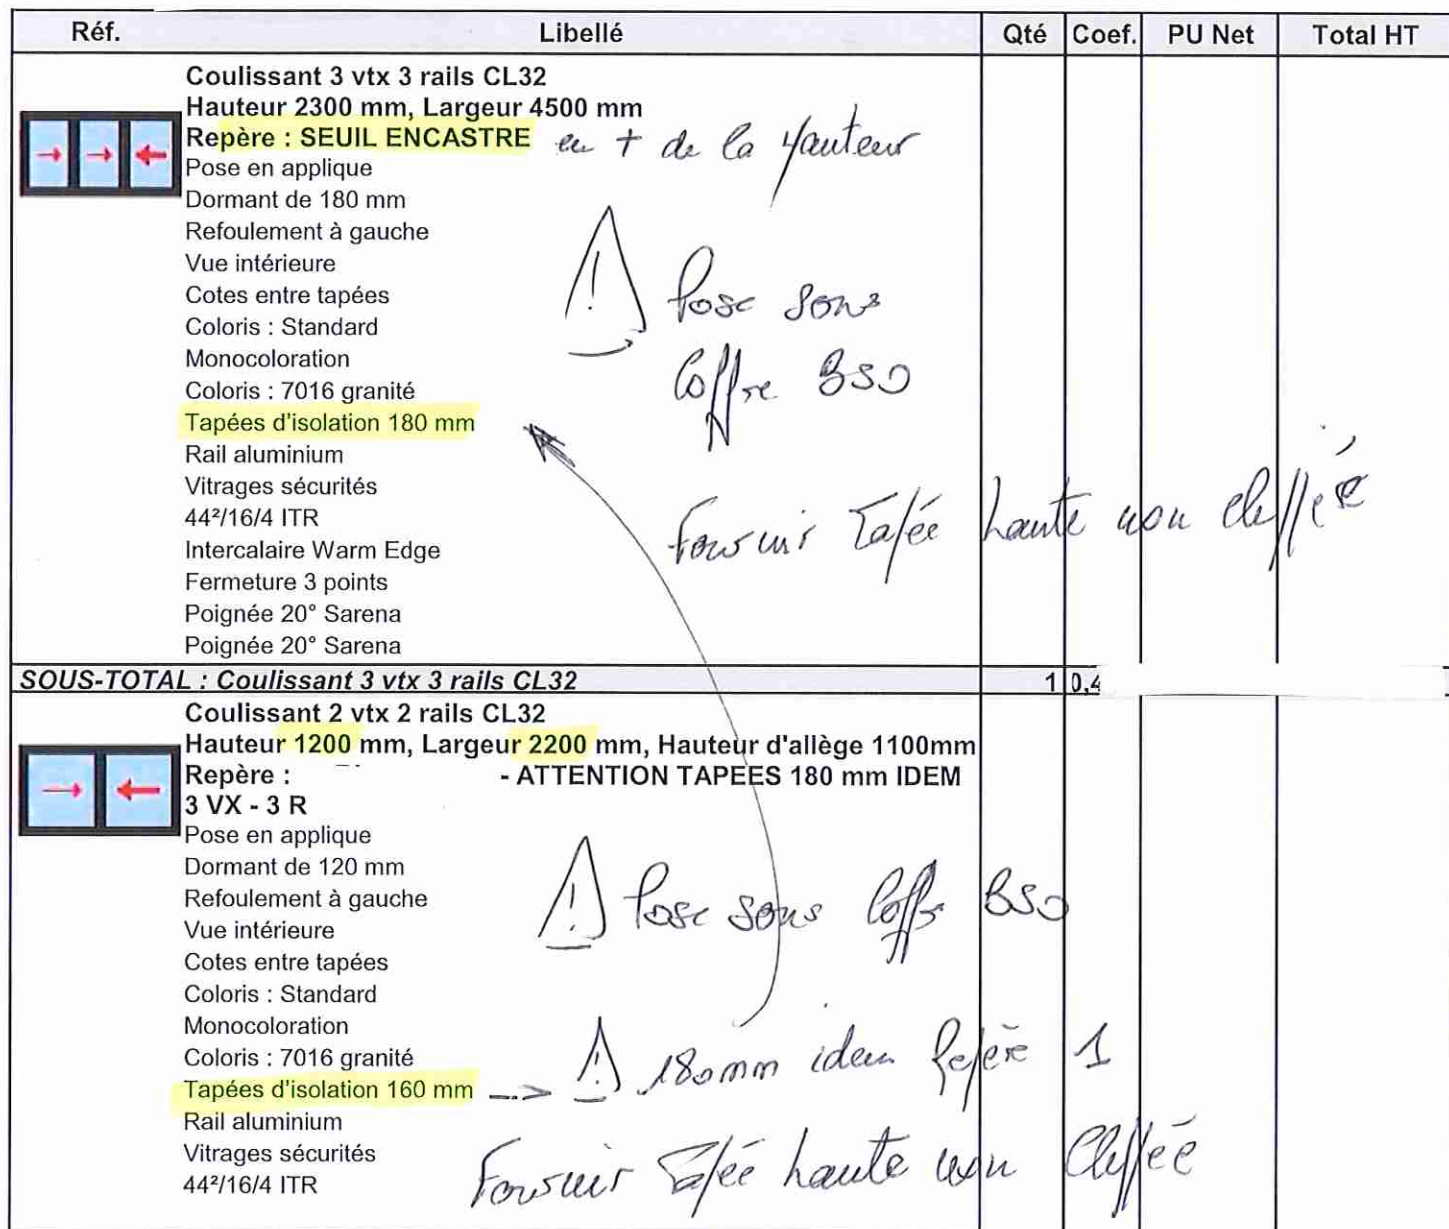 Réf. Libellé Qté Coef. PU Net Total HT
Coulissant 3 vtx 3 rails CL32
Hauteur 2300 mm, Largeur 4500 mm
Repère : SEUIL ENCASTRE en + de la Hauteur
Pose en applique
Dormant de 180 mm
Refoulement à gauche
Vue intérieure
! Pose sous
Cotes entre tapées
Coloris : Standard
Monocoloration
Coffre BSO
Coloris : 7016 granité
Tapées d'isolation 180 mm
Rail aluminium
Vitrages sécurités
44²/16/4 ITR
Fournir Tapée haute non clippée
Intercalaire Warm Edge
Fermeture 3 points
Poignée 20° Sarena
Poignée 20° Sarena
SOUS-TOTAL : Coulissant 3 vtx 3 rails CL32 1 0,4
Coulissant 2 vtx 2 rails CL32
Hauteur 1200 mm, Largeur 2200 mm, Hauteur d'allège 1100mm
Repère : - ATTENTION TAPEES 180 mm IDEM
3 VX - 3 R
Pose en applique
Dormant de 120 mm
Refoulement à gauche
! Pose sous Coffre BSO
Vue intérieure
Cotes entre tapées
Coloris : Standard
Monocoloration
Coloris : 7016 granité
Tapées d'isolation 160 mm ! 180mm idem Repère 1
Rail aluminium
Vitrages sécurités
44²/16/4 ITR
Fournir Tapée haute non Clippée